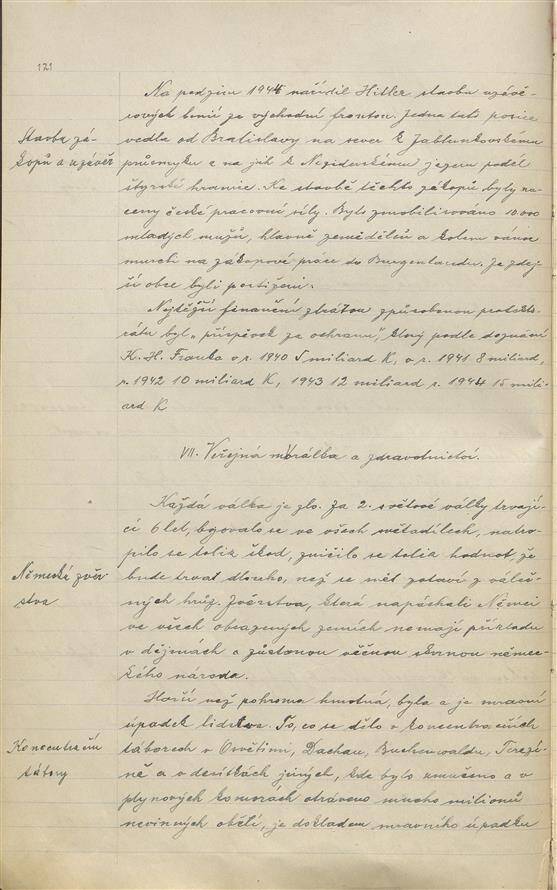 121
Na podzim 1944 nařídil Hitler stavbu uzávě-
rových linií za východní frontou. Jedna tato posice
Stavba zá-
vedla od Bratislavy na sever k Jablunkovskému
kopů a uzávěr
průsmyku a na jih k Neziderskému jezeru podél
štyrské hranice. Ke stavbě těchto zákopů byly na-
ceny české pracovní síly. Bylo zmobilisováno 10.000
mladých mužů, hlavně zemědělců a kolem vánoc
museli na zákopové práce do Burgenlandu. Ze zdej-
ší obce byli postiženi.
Nejtěžší finanční ztrátou způsobenou protekto-
rátu byl „příspěvek za ochranu“, který podle doznání
K. H. Franka v r. 1940 5 miliard K, v r. 1941 8 miliard,
r. 1942 10 miliard K, 1943 12 miliard r. 1944 15 mili-
ard K
VII. Veřejná morálka a zdravotnictví.
Každá válka je zlo. Za 2. světové války trvají-
cí 6 let, bojovalo se ve všech světadílech, natro-
pilo se tolik škod, zničilo se tolik hodnot, že
Německá zvěr-
bude trvat dlouho, než se svět zotaví z váleč-
stva
ných hrůz. Zvěrstva, která napáchali Němci
ve všech obsazených zemích nemají příkladu
v dějinách a zůstanou věčnou skvrnou němec-
kého národa.
Horší než pohroma hmotná, byla a je mravní
úpadek lidstva. To, co se dělo v koncentračních
Koncentrační
táborech v Osvětimi, Dachau, Buchenwaldu, Terezí-
tábory
ně a v desítkách jiných, kde bylo umučeno a v
plynových komorách otráveno mnoho milionů
nevinných obětí, je dokladem mravního úpadku